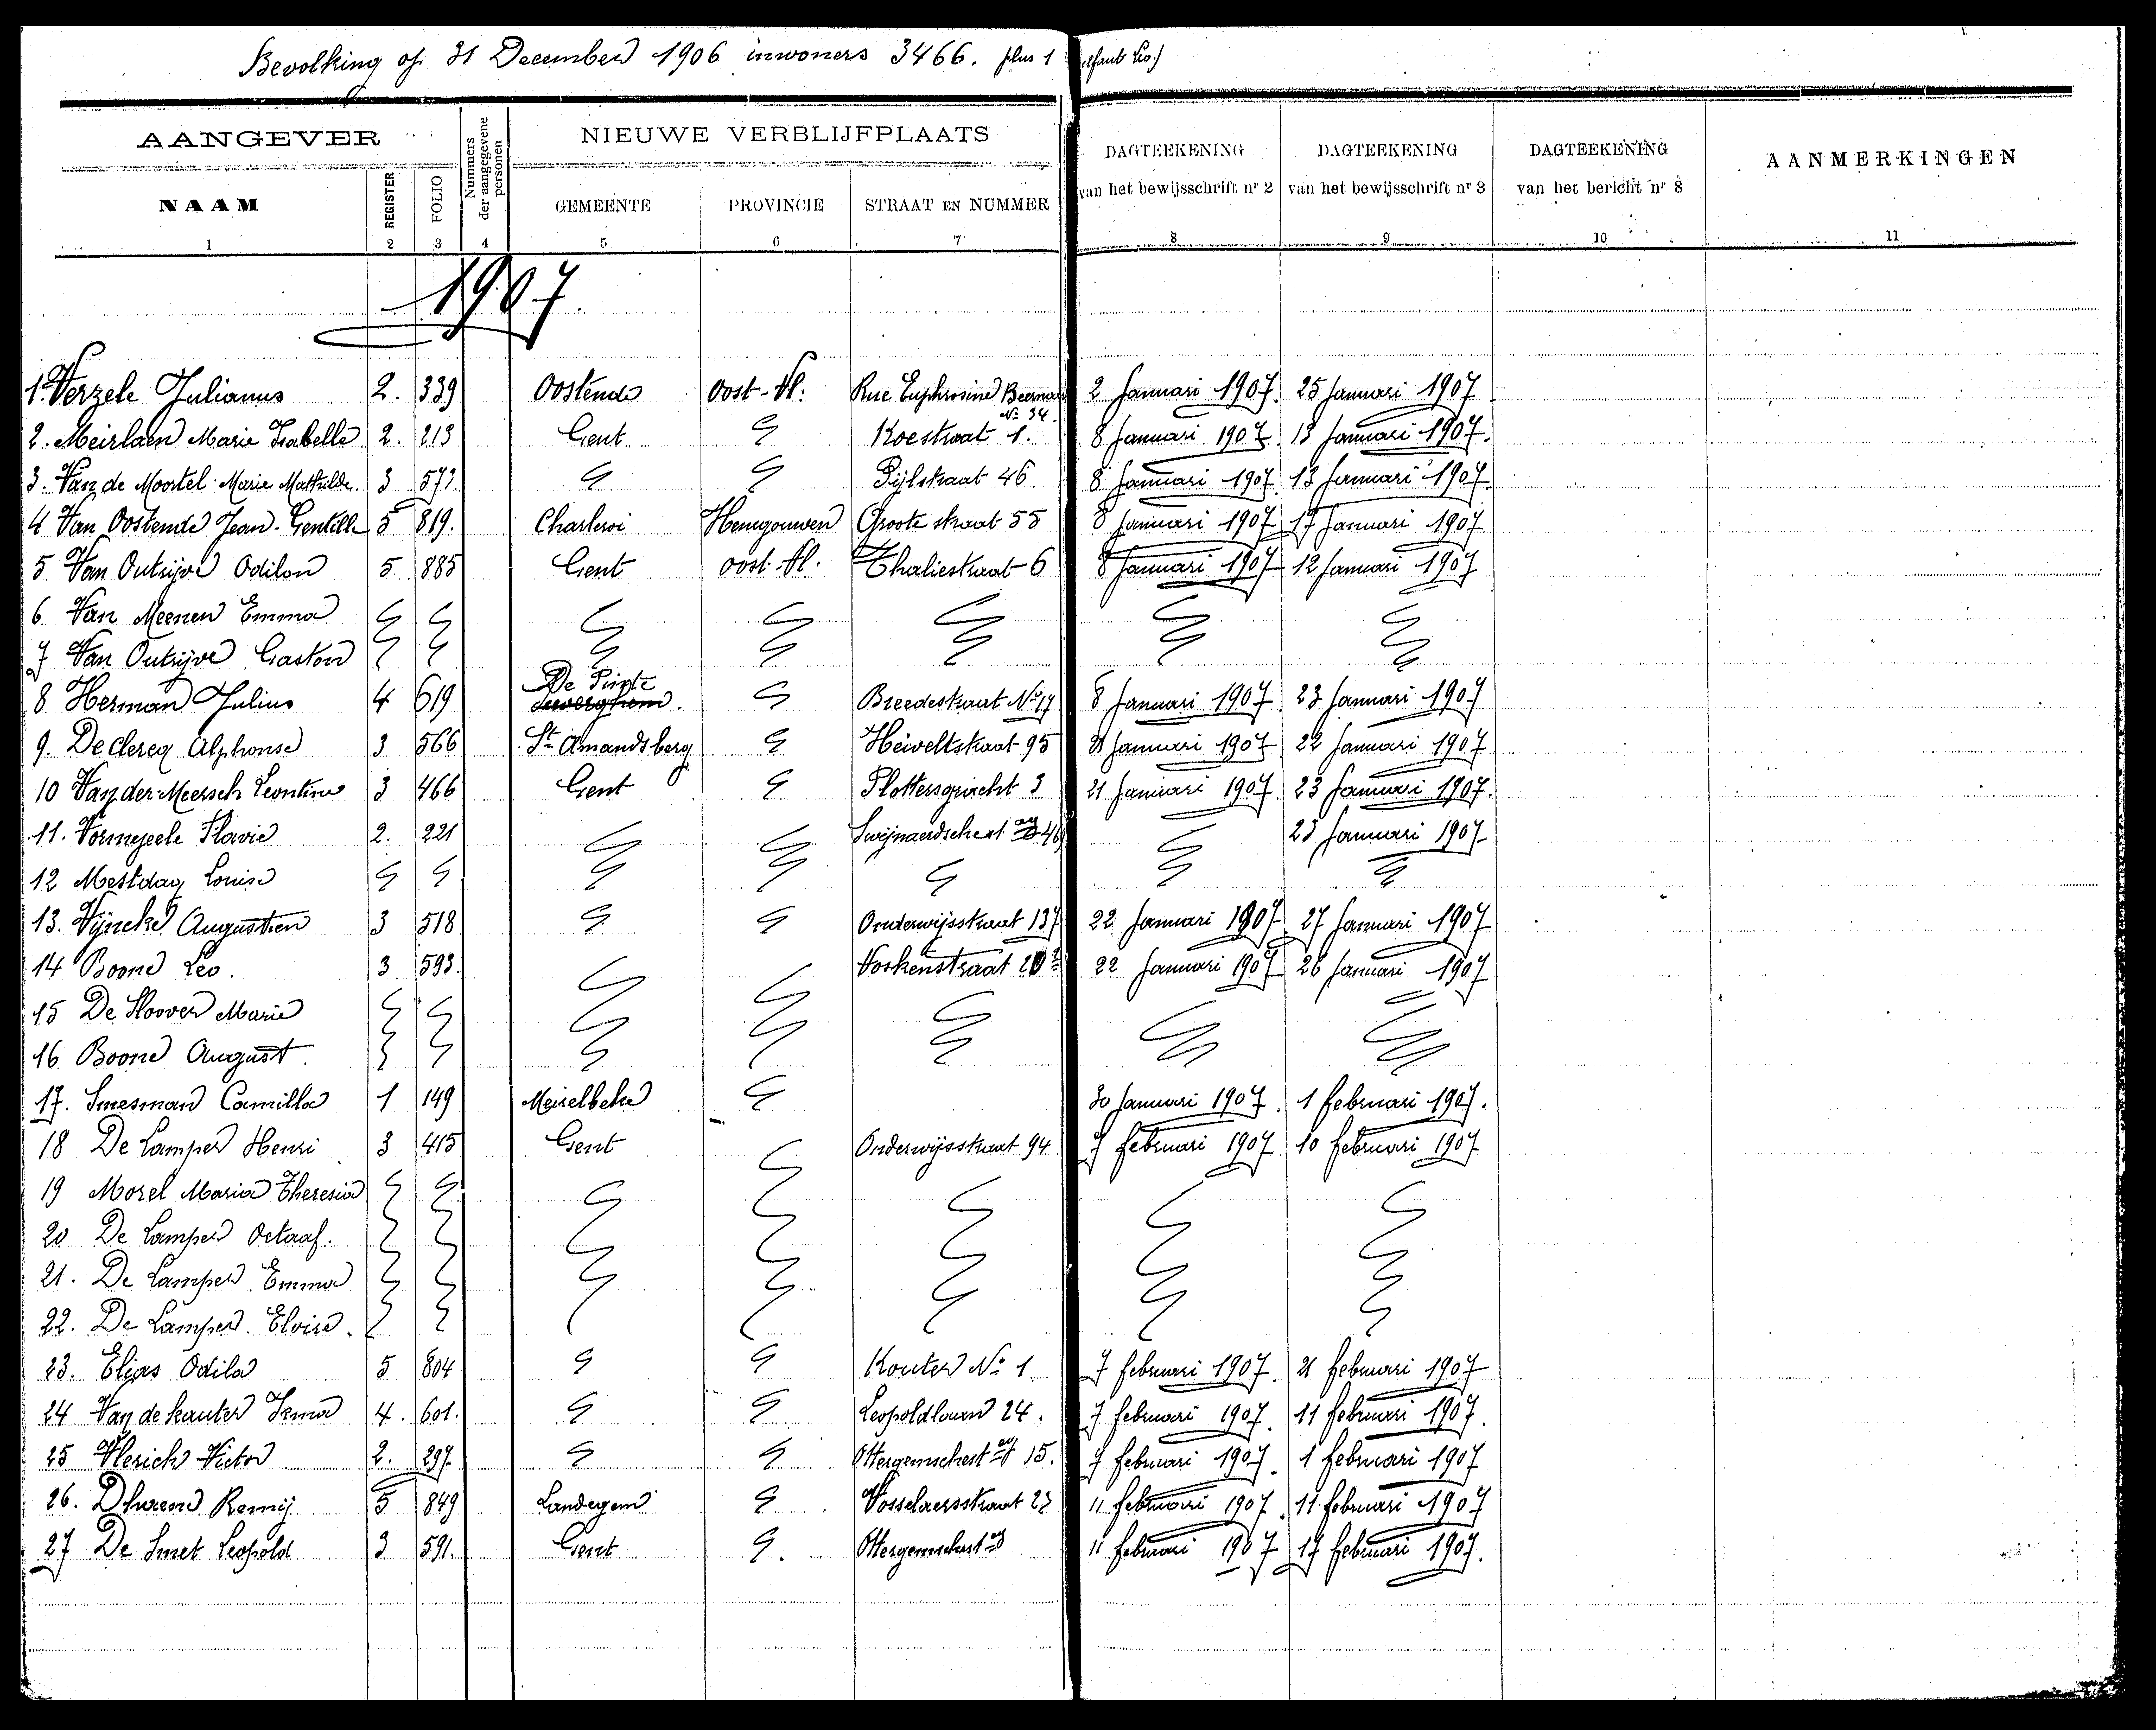 Bevolking op 31 December 1906 inwoners 3466. plus 1
AANGEVER
NAAM
REGISTER
FOLIO
Nummers der aangegevene personen
NIEUWE VERBLIJFPLAATS
GEMEENTE
PROVINCIE
STRAAT EN NUMMER
DAGTEEKENING van het bewijsschrift nr 2
DAGTEEKENING van het bewijsschrift nr 3
DAGTEEKENING van het bericht nr 8
AANMERKINGEN
1 2 3 4 5 6 7 8 9 10 11
1907
1. Verzele Julianus 2. 339 Oostende Oost-Vl: Rue Euphrosine Beernaert No 34. 2 Januari 1907. 25 Januari 1907
2. Meirlaen Marie Isabelle 2. 213 Gent " Koestraat 1. 8 Januari 1907 13 Januari 1907.
3. Van de Moortel Marie Mathilde 3 573. " " Pijlstraat 46 8 Januari 1907. 13 Januari 1907.
4 Van Oostende Jean-Gentille 5 819. Charleroi Henegouwen Groote straat 55 8 Januari 1907 17 Januari 1907
5 Van Outrijve Odilon 5 885 Gent oost-Vl. Thaliestraat 6 8 Januari 1907 12 Januari 1907
6. Van Meenen Emma " " " " " " "
7 Van Outrijve Gaston " " " " " " "
8 Herman Julius 4 619 De Pinte " Breedestraat No 17 8 Januari 1907 23 Januari 1907
9. De Clercq Alphonse 3 566 St Amandsberg " Heiveltstraat 95 21 Januari 1907 22 Januari 1907
10 Van der Meersch Leontine 3 466 Gent " Plottersgracht 3 21 Januari 1907 23 Januari 1907.
11. Vormezeele Flavie 2. 221 " " Swijnaerdschest " 23 Januari 1907
12 Mestdag Louise " " " " " " "
13. Vyncke Augustien 3 518 " " Onderwijsstraat 137 22 Januari 1907 27 Januari 1907
14 Boone Leo. 3 593. " " Voskenstraat 22 Januari 1907 26 Januari 1907
15 De Hoover Marie " " " " " " "
16. Boone August. " " " " " " "
17. Smesman Camilla 1 149 Meirelbeke " 30 Januari 1907. 1 februari 1907.
18 De Lamper Henri 3 415 Gent " Onderwijsstraat 94 7 februari 1907 10 februari 1907
19 Morel Maria Theresia " " " " " " "
20 De Lamper Octaaf. " " " " " " "
21. De Lamper Emma " " " " " " "
22. De Lamper Eloise. " " " " " " "
23. Elias Odila 5 804 " " Kouter No 1. 7 februari 1907. 21 februari 1907
24 Van de kauter Irma 4. 601. " " Leopoldlaan 24. 7 februari 1907. 11 februari 1907.
25 Vlerick Victor 2. 297. " " Ottergemschest 15. 7 februari 1907. 1 februari 1907
26. Dhaene Remy 5 849 Landegem " Vosselaersstraat 23 11 februari 1907. 11 februari 1907
27 De Smet Leopold 3 591. Gent " Ottergemschest 11 februari 1907 17 februari 1907.